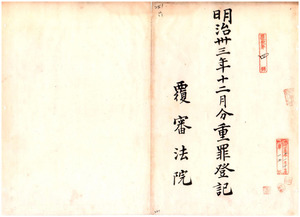 明治卅三年十二月分重罪登記
覆審法院